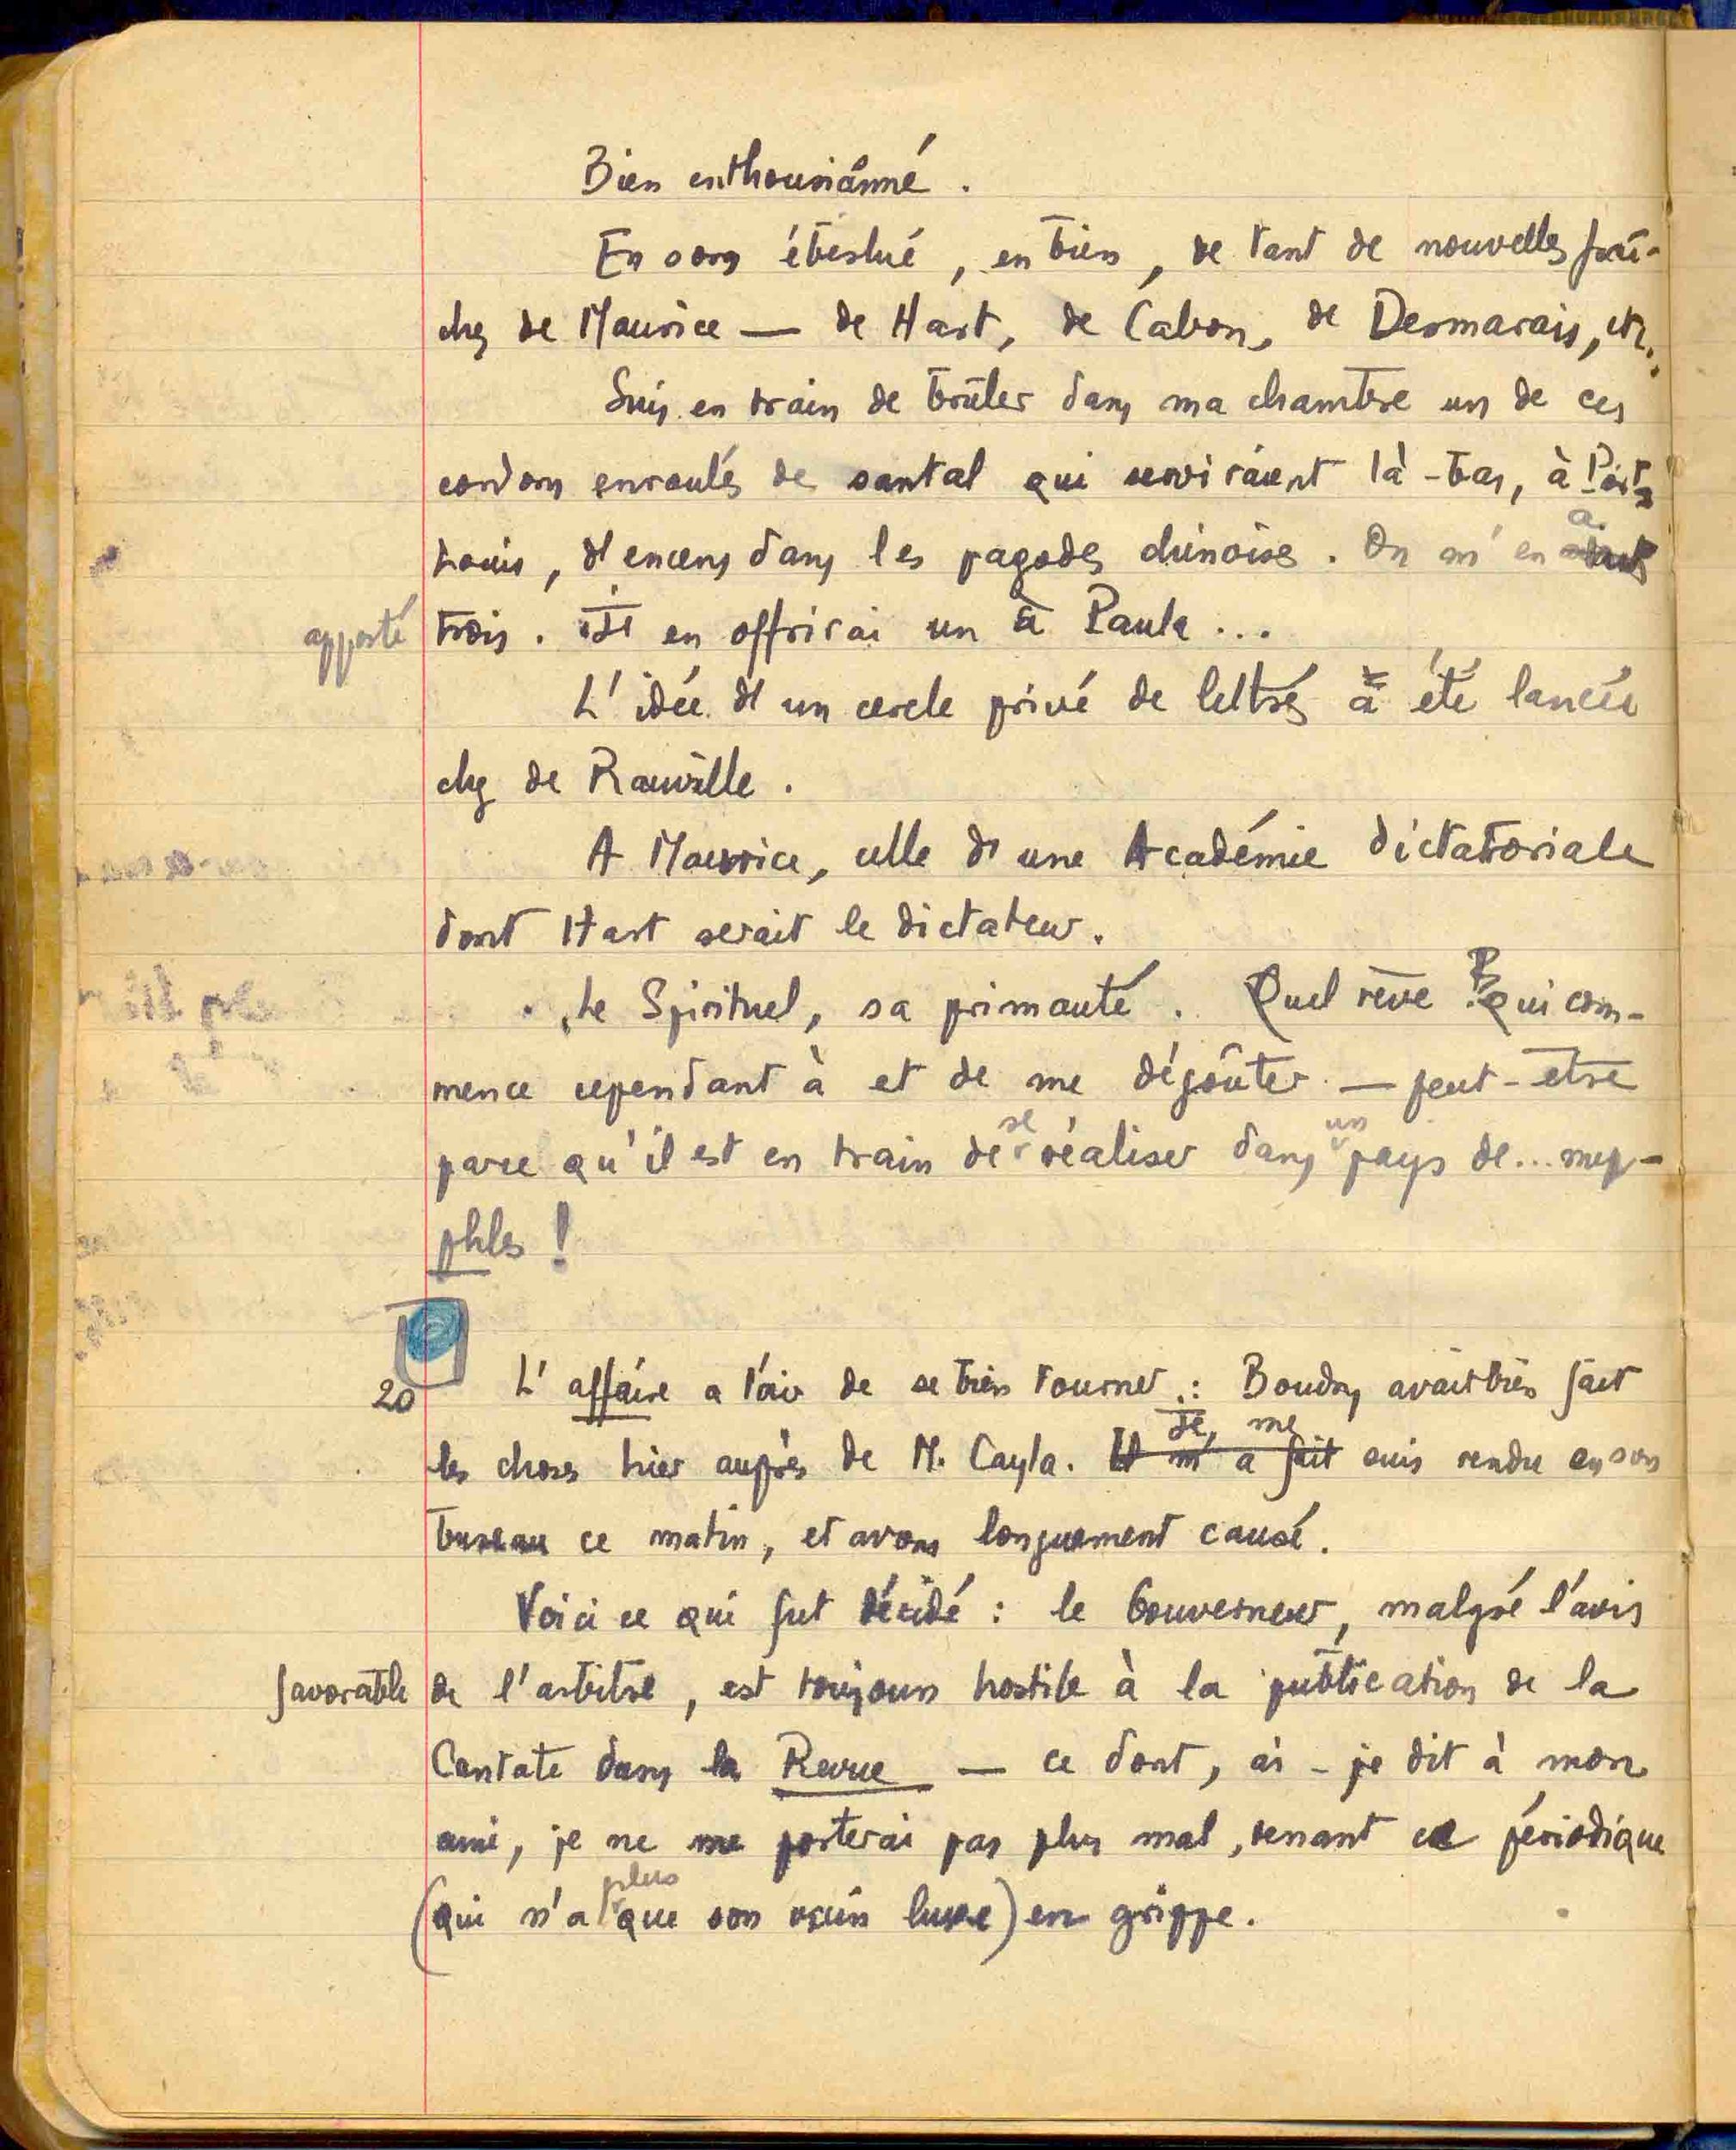 Bien enthousiasmé.
En sors éberlué, en bien, de tant de nouvelles fraî-
ches de Maurice — de Hart, de Cabon, de Desmarais, etc.
Suis en train de brûler dans ma chambre un de ces
cordons enroulés de santal qui serviraient là-bas, à Port-
Louis, d'encens dans les pagodes chinoises. On m'en a
apporté trois. J'en offrirai un à Paula...
L'idée d'un cercle privé de lettrés a été lancée
chez de Rauville.
A Maurice, celle d'une Académie dictatoriale
dont Hart serait le dictateur.
Le Spirituel, sa primauté. Quel rêve ! Qui com-
mence cependant à et de me dégoûter — peut-être
parce qu'il est en train de se réaliser dans un pays de... muf-
phles !
20 L'affaire a l'air de se bien tourner : Boudry avait très fait
les choses hier auprès de M. Cayla. Il m'a fait Je me suis rendu en son
bureau ce matin, et avons longuement causé.
Voici ce qui fut décidé : le Gouverneur, malgré l'avis
favorable de l'arbitre, est toujours hostile à la publication de la
Cantate dans la Revue — ce dont, ai-je dit à mon
ami, je ne me porterai pas plus mal, tenant ce périodique
(qui n'a plus que son vain luxe) en grippe.